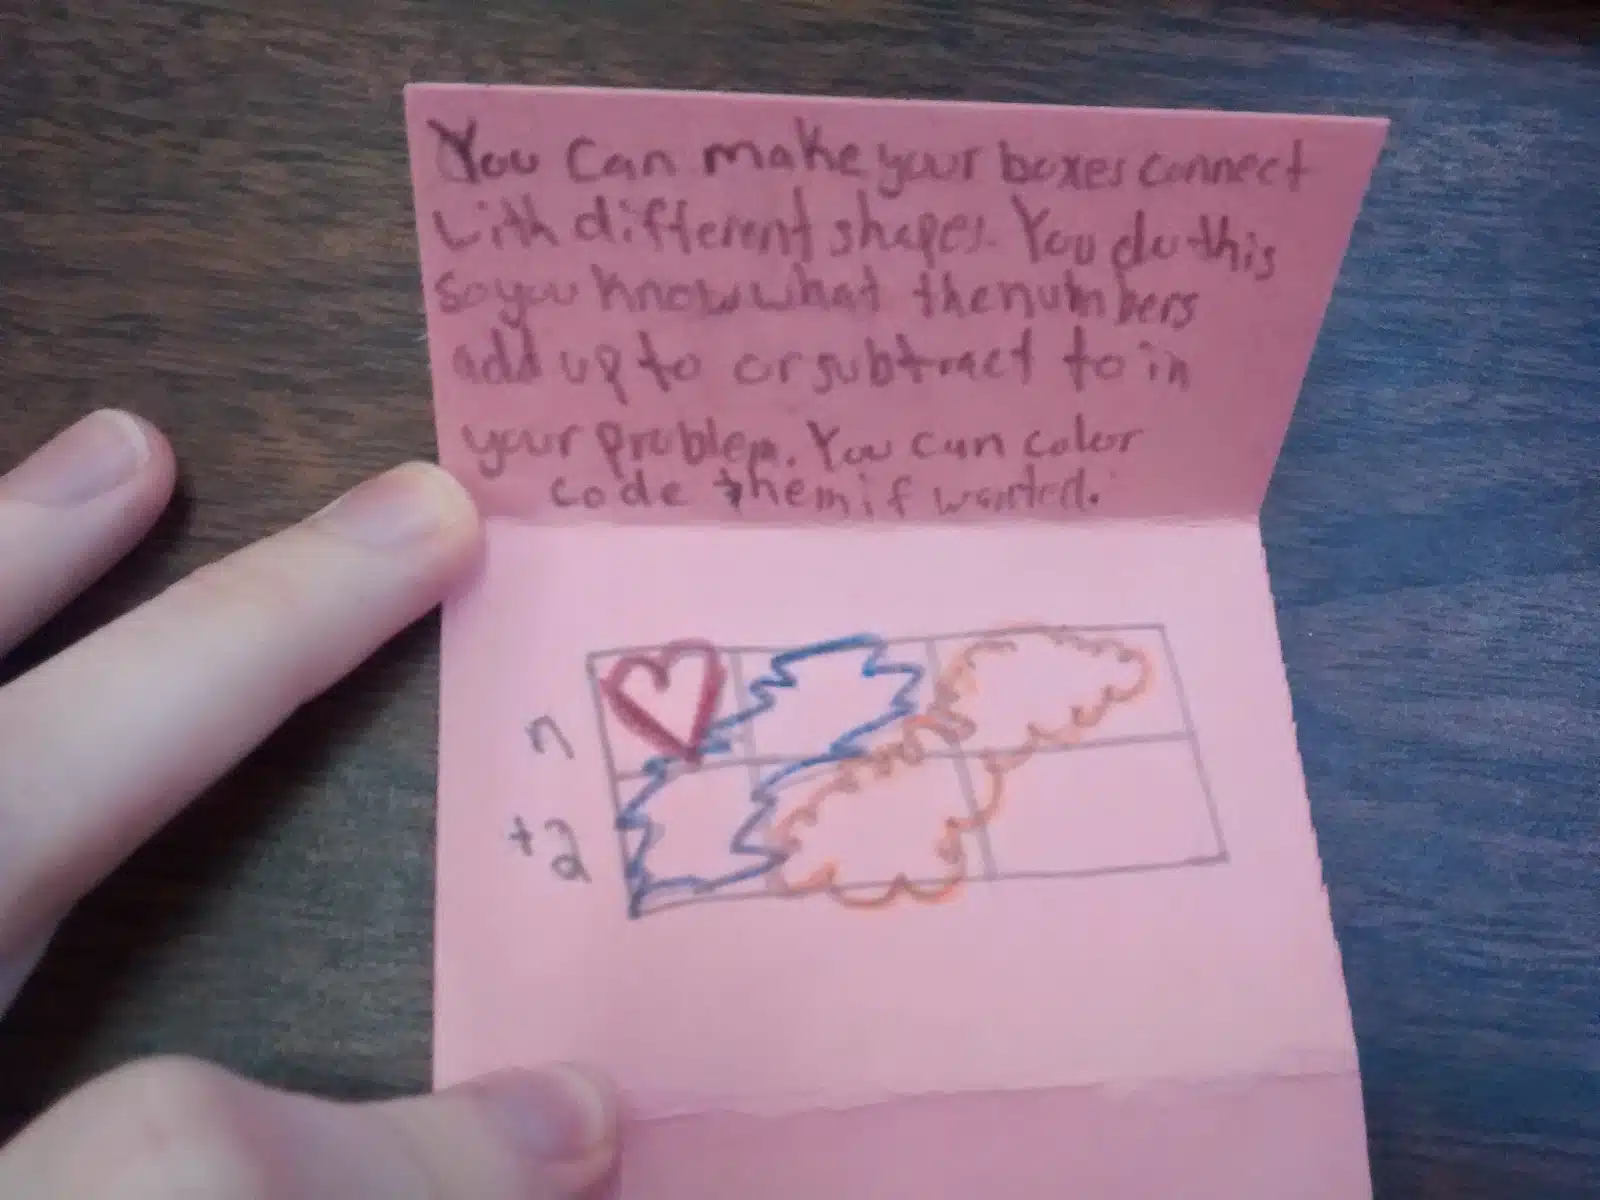 You can make your boxes connect
with different shapes. You do this
so you know what the numbers
add up to or subtract to in
your problem. You can color
code them if wanted.
n
+2